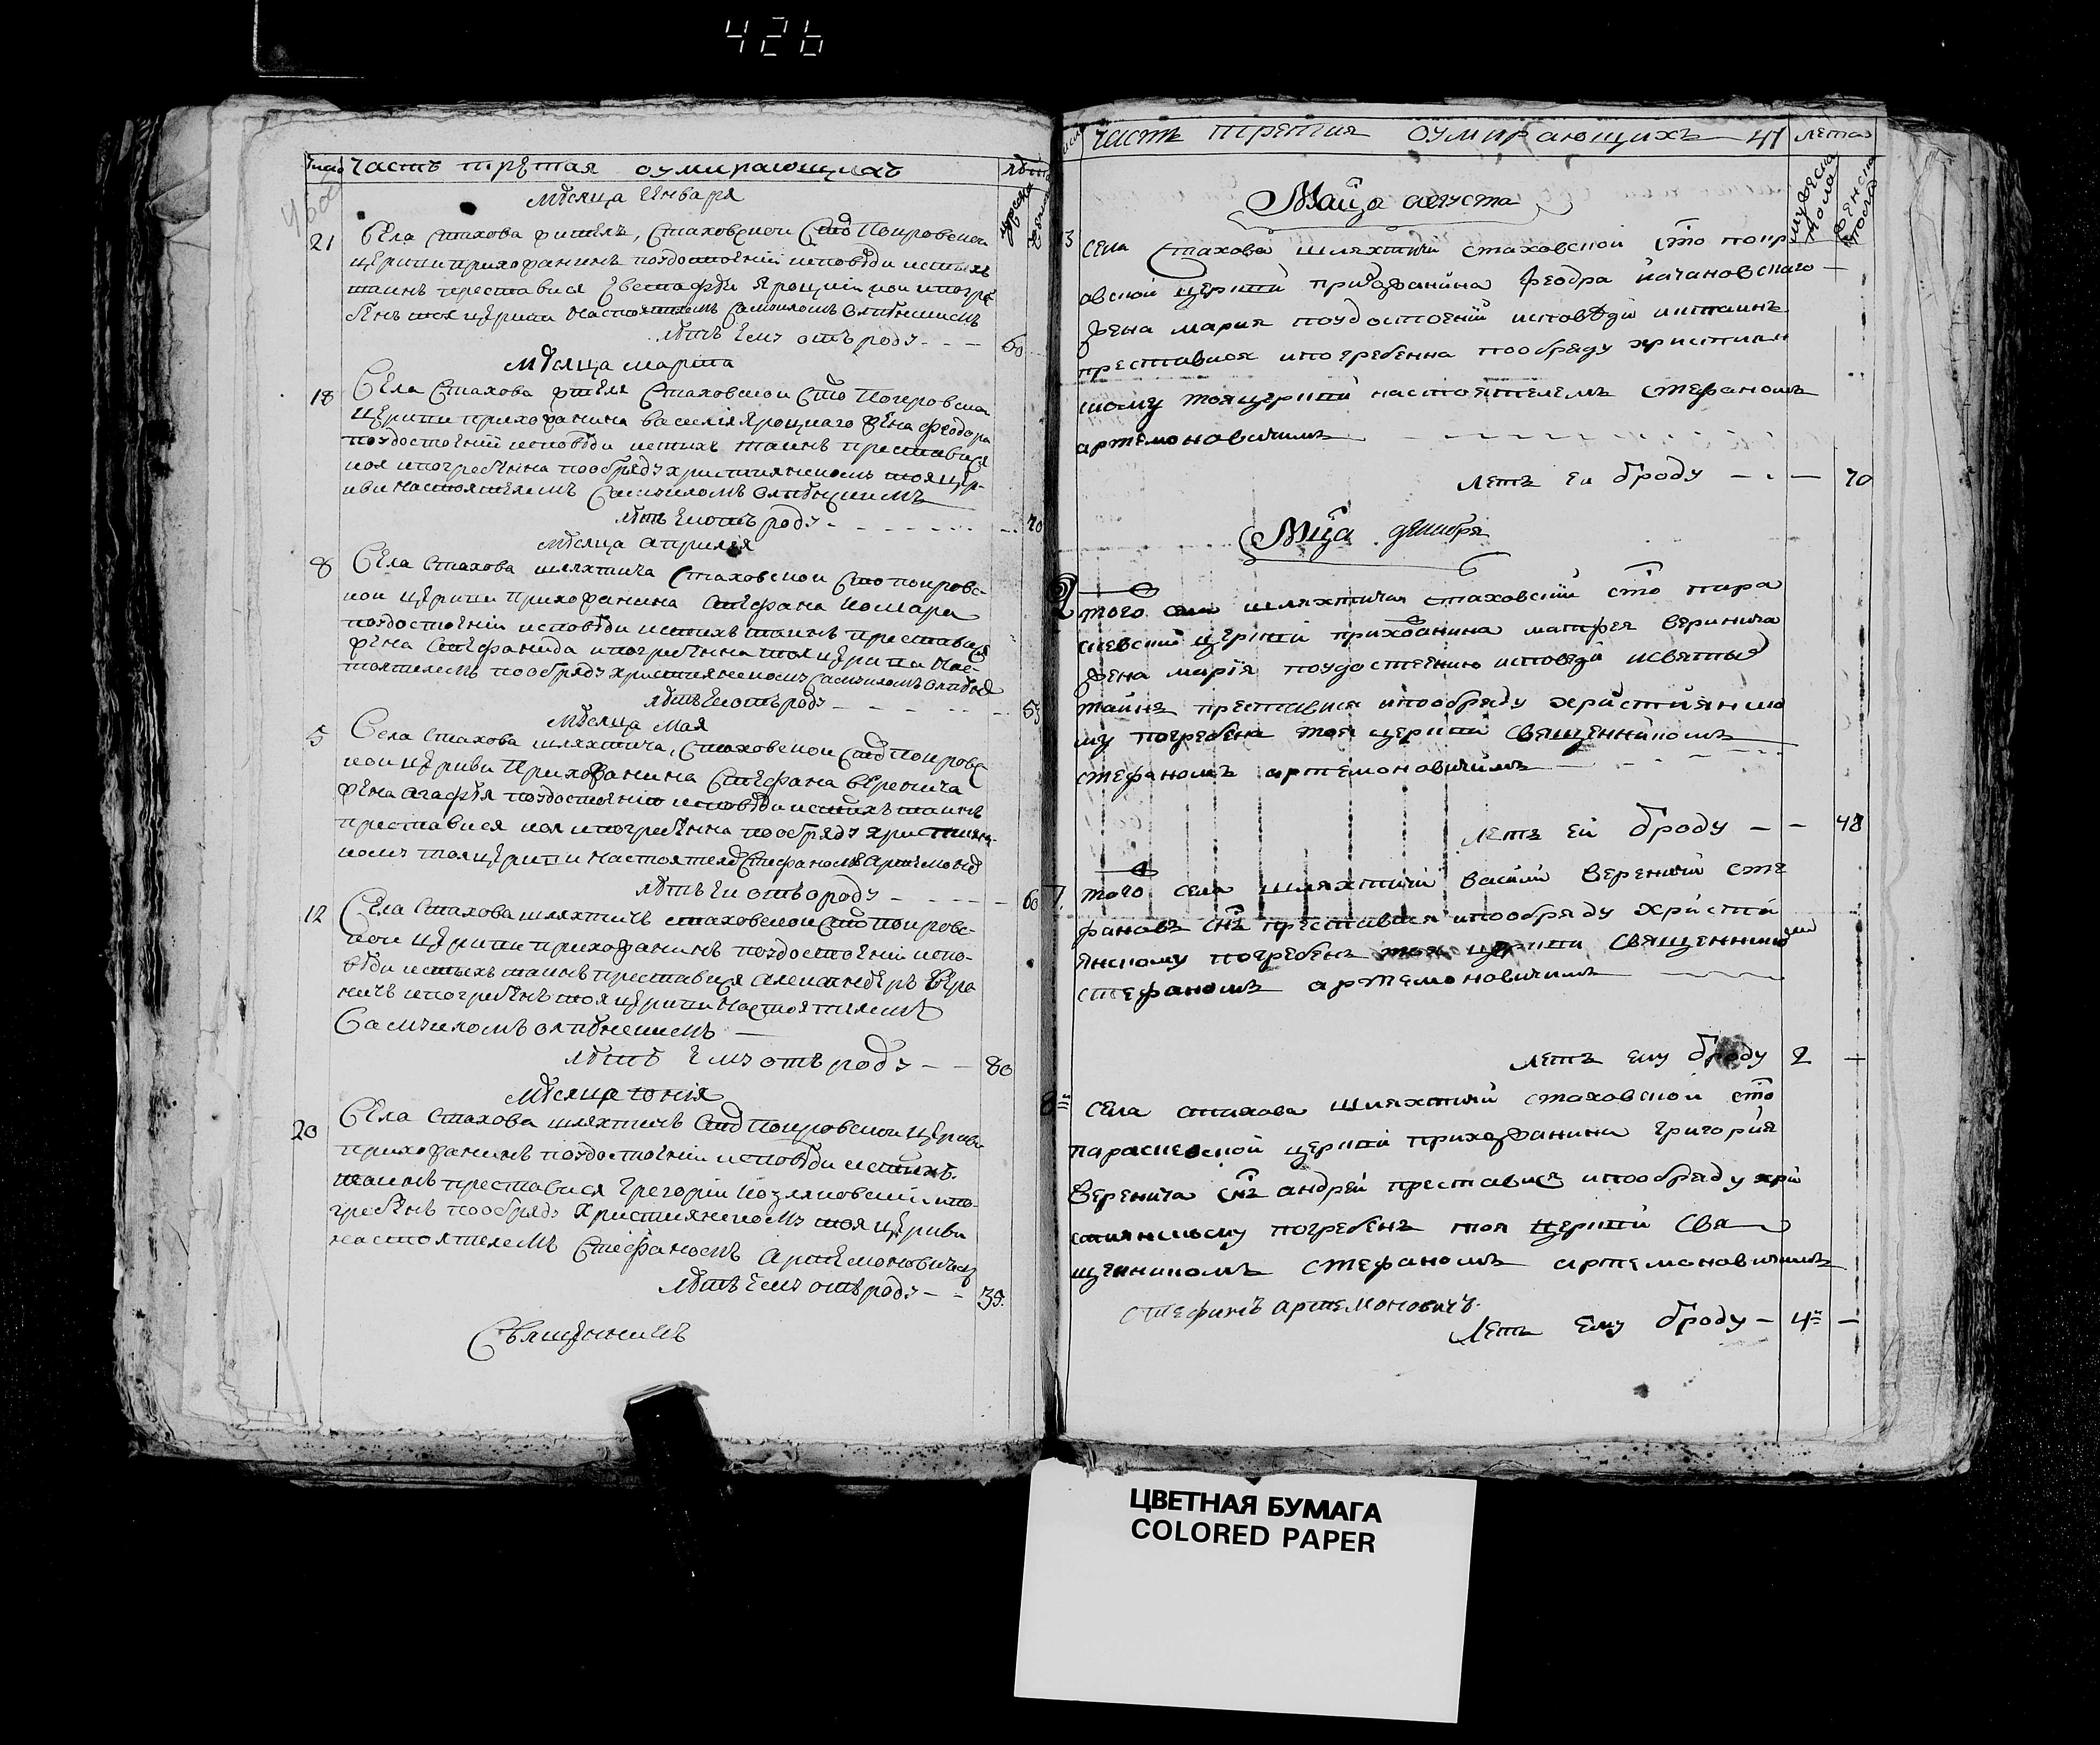 426
Часть третая оумирающихъ
Мѣсяца Енваря
21 Села Стахова житель, Стаховской Сто Покровской
церкви прихожанинъ поудостоеніи исповѣди истыхъ
таинъ преставися Евстафѣй Яроцкій кои погре
бенъ тоя церкви настоятелемъ Самуиломъ
лѣтъ Ему отъ роду - - - 60
Мѣсяца марта
18 Села Стахова жителя Стаховской Сто Покровской
церкви прихожанина Василія Яроцкаго жена Феодора
поудостоеній исповѣди истыхъ таинъ преставися
коя и погребенна пообряду християнскому тоя цер-
кви настоятелемъ Самуиломъ
лѣтъ Ей отъ роду - - - 70
Мѣсяца априля
8 Села Стахова шляхтича Стаховской Сто покровс-
кой церкви прихожанина Стефана Комара
поудостоеніи исповѣди истихъ таинъ преставися
жена Стефанида и погребенна тоя церкви нас-
тоятелемъ пообряду християнскому Самуиломъ
лѣтъ Ей отъ роду - - -
Мѣсяца Мая
5 Села Стахова шляхтича, Стаховской Сто Покровс
кой церкви Прихожанина Стефана Веренича
жена Агафѣя поудостоенію исповѣди истихъ таинъ
преставися коя и погребенна пообряду християн-
кому тоя церкви настоятеле Стефаномъ Артемоно
лѣтъ Ей отъ роду - - - 60
12 Села Стахова шляхтичъ стаховской Сто покровс-
кой церкви прихожанинъ поудостоеній испо-
вѣди истыхъ таинъ преставися Александеръ Вере
ничъ и погребенъ тоя церкви настоятелемъ
Самуиломъ
лѣтъ Ему отъ роду - - 80
Мѣсяца юнія
20 Села Стахова шляхтичъ Сто Покровской церкви
прихожанинъ поудостоеніи исповѣди истихъ
таинъ преставися Грегорій Козляковский и по-
гребенъ пообряду Християнскому тоя церкви
настоятелемъ Стефаномъ Артемоновичем
лѣтъ Ему отъ роду - - 35.
Священникъ
часть третия оумирающихъ 41 лета
мужеска пола
женска
Мѣца августа
13 села Стахова шляхтичи стаховской сто покр
овской церкви прихожанина Феодра Качановскаго
жена мария поудостоеніи исповѣди итаинъ
преставися ипогребенна пообряду християн
скому тоя церкви настоятелемъ стефаномъ
артемоновичимъ
летъ ей ѿроду - - - 70
Мѣца декабря
того села шляхтича стаховский сто пара
скевский церкви прихожанина матфея веринича
жена марїя поудостоению исповѣди исвятыхъ
таинъ преставися ипообряду християнско
му погребена тоя церкви священникомъ
стефаномъ артемоновичимъ
летъ ей ѿроду - - 48
7. того села шляхтичй василий Вереничй сте
фановъ снъ преставися ипообряду Христи
янскому погребенъ тоя церкви священником
стефаномъ артемоновичимъ
летъ ему ѿроду 2 -
села стахова шляхтичй стаховской сто
параскевской церкви прихожанина григория
Веренича снъ андрей преставися ипообряду хри
стиянскому погребенъ тоя церкви Свя
щенникомъ стефаномъ артемоновичимъ
стефанъ артемоновичъ.
Летъ Ему ѿроду - 4 -
ЦВЕТНАЯ БУМАГА
COLORED PAPER